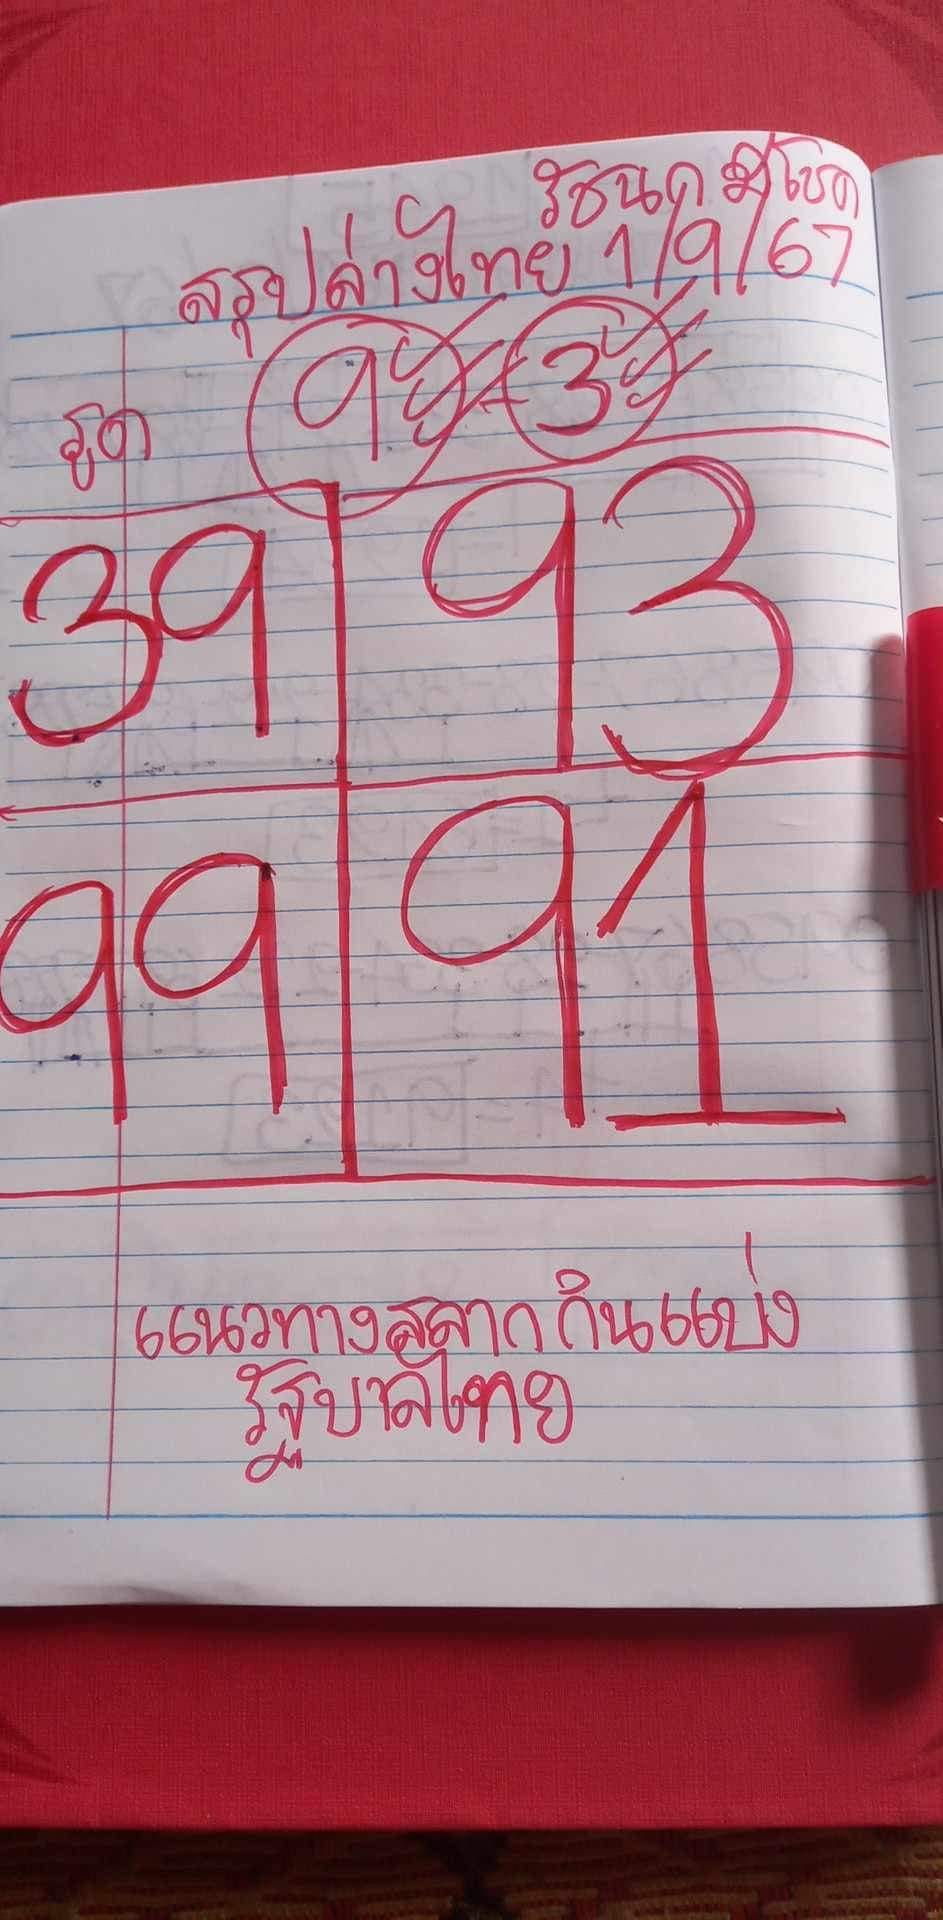 รัชนก มีโชค
สรุปล่างไทย 1/9/67
รูด 9%-3%
39 93
99 91
แนวทางสลากกินแบ่ง
รัฐบาลไทย